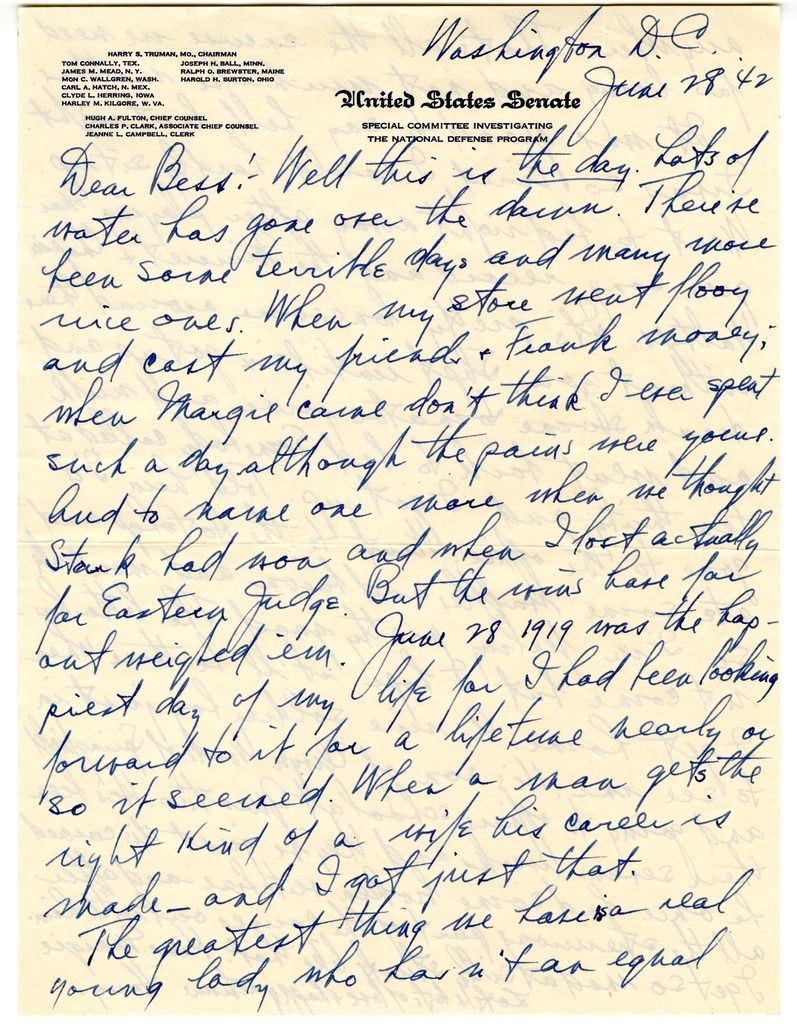 HARRY S. TRUMAN, MO., CHAIRMAN
TOM CONNALLY, TEX. JOSEPH H. BALL, MINN.
JAMES M. MEAD, N. Y. RALPH O. BREWSTER, MAINE
MON C. WALLGREN, WASH. HAROLD H. BURTON, OHIO
CARL A. HATCH, N. MEX.
CLYDE L. HERRING, IOWA
HARLEY M. KILGORE, W. VA.
HUGH A. FULTON, CHIEF COUNSEL
CHARLES P. CLARK, ASSOCIATE CHIEF COUNSEL
JEANNE L. CAMPBELL, CLERK
Washington D.C.
June 28 42
United States Senate
SPECIAL COMMITTEE INVESTIGATING
THE NATIONAL DEFENSE PROGRAM
Dear Bess:- Well this is the day. Lots of
water has gone over the damn. There've
been some terrible days and many more
nice ones. When my store went flooy
and cost my friends + Frank money;
when Margie came don't think I ever spent
such a day although the pains were yours.
And to name one more when we thought
Stark had won and when I lost actually
for Eastern Judge. But the wins have far
out weighed 'em. June 28 1919 was the hap-
piest day of my life for I had been looking
forward to it for a lifetime nearly or
so it seemed. When a man gets the
right kind of a wife his career is
made - and I got just that.
The greatest thing we have is a real
young lady who hasn't an equal